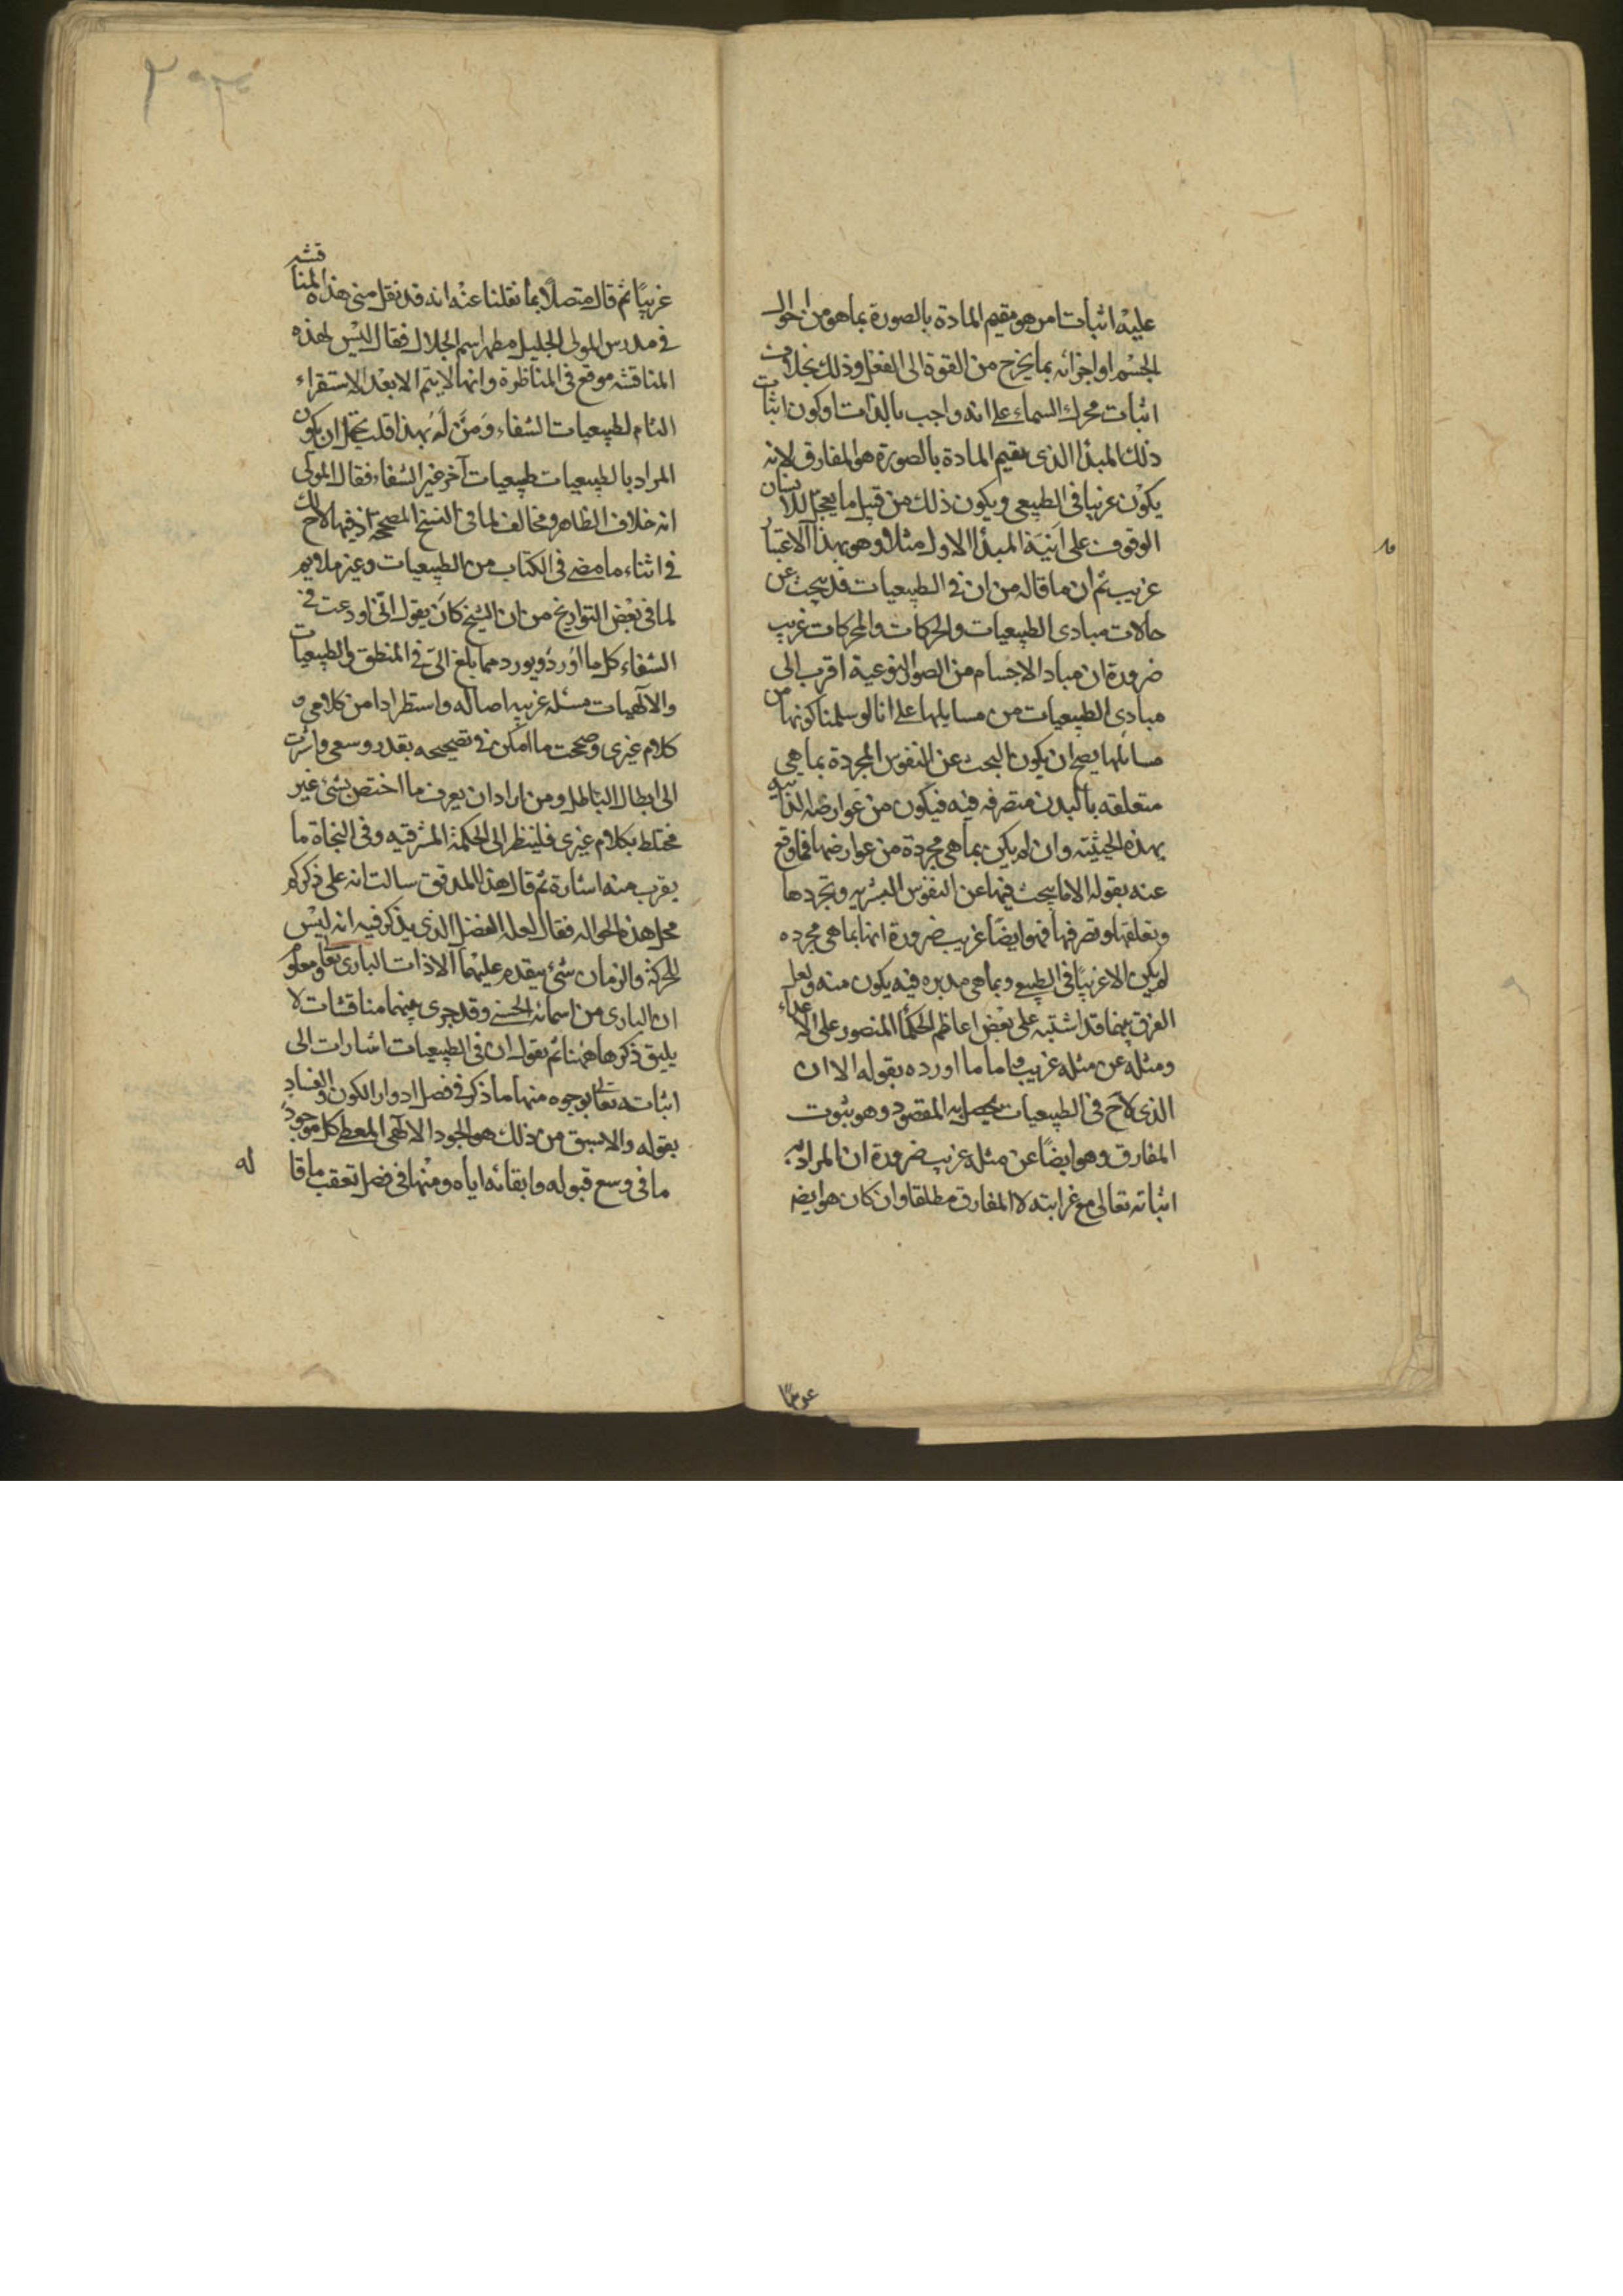 عليه اثبات امر هو مقيم المادة بالصورة بما هو من احوال
الجسم او اجزائه بما يخرج من القوة الى الفعل وذلك بخلاف
اثبات محرك السماء على انه واجب بالذات وكون اثبات
ذلك المبدأ الذى يقيم المادة بالصورة هو المفارق لانه
يكون غريبا فى الطبيعى ويكون ذلك من قبيل ما يعجل للانسان
الوقوف على انية المبدأ الاول مثلا وهو بهذا الاعتبار
غريب ثم ان ما قاله من ان فى الطبيعيات قد يبحث عن
حالات مبادى الطبيعيات والحركات والمحركات غريب
ضرورة ان مباد الاجسام من الصور النوعية اقرب الى
مبادى الطبيعيات من مسايلها على انا لو سلمنا كونها من
مسائلها يصح ان يكون البحث عن النفوس المجردة بما هى
متعلقه بالبدن متصرفه فيه فيكون من عوارضه الذاتيه
بهذه الحيثيته وان لم يكن بما هى مجردة من عوارضها فما وقع
عنه بقوله الا ما يبحث فيها عن النفوس البشريه وتجردها
وتعلقها وتصرفها فهو ايضًا غريب ضرورة انها بما هى مجرده
لم يكن الا غريبًا فى الطبيعى وبما هى مدبره فيه يكون منه ولعل
الفرق بينهما قد اشتبه على بعض اعاظم الحكما المنصور على الاعداء
ومثله عن مثله غريب واما ما اورده بقوله الا ان
الذى لاح فى الطبيعيات يحصل به المقصود وهو ثبوت
المفارق وهو ايضًا عن مثله غريب ضرورة ان المراد به
اثباته تعالى مع غرابته لا المفارق مطلقا وان كان هو ايضا
غريبًا ثم قال متصلًا بما نقلنا عنه انه قد نقل منى هذه المناقشه
فى مدرس المولى الجليل مظهر اسم الجلال فقال ليس لهذه
المناقشه موقع فى المناظرة وانها لا يتم الا بعد الاستقراء
التام لطبيعيات الشفاء ومن له بهذا قلت يحتمل ان يكون
المراد بالطبيعيات طبيعيات آخر غير الشفاء فقال المولى
انه خلاف الظاهر ومخالف لما فى النسخ المصححة اذ فيها لاح لك
فى اثناء ما مضى فى الكتاب من الطبيعيات وغير ملايم
لما فى بعض التواريخ من ان الشيخ كان يقول انى اودعت فى
الشفاء كل ما اورد ويورد مما بلغ الىّ فى المنطق والطبيعيات
والالهيات مسئله غريبه اصاله واستطرادا من كلامى و
كلام غيرى وصححت ما امكن فى تصحيحه بقدر وسعى واشرت
الى ابطال الباطل ومن اراد ان يعرف ما اختص بشئ غير
مختلط بكلام غيرى فلينظر الى الحكمة المشرقيه وفى النجاة ما
يقرب منه اشارة ثم قال هذا المدقق سالت انه على ذكركم
محل هذه الحواله فقال لعله الفصل الذى يذكر فيه انه ليس
للحركة والزمان شئ يتقدم عليهما الا ذات البارى تعا ومعلوم
ان البارى من اسمائه الحسنى وقد جرى بينهما مناقشات لا
يليق ذكرها ههنا ثم يقول ان فى الطبيعيات اشارات الى
اثباته تعالى بوجوه منها ما ذكر فى فصل ادوار الكون والفساد
بقوله والاسبق من ذلك هو الجود الالهى المعطى كل موجود
ما فى وسع قبوله وابقائه اياه ومنها فى فصل تعقب ما قا
له